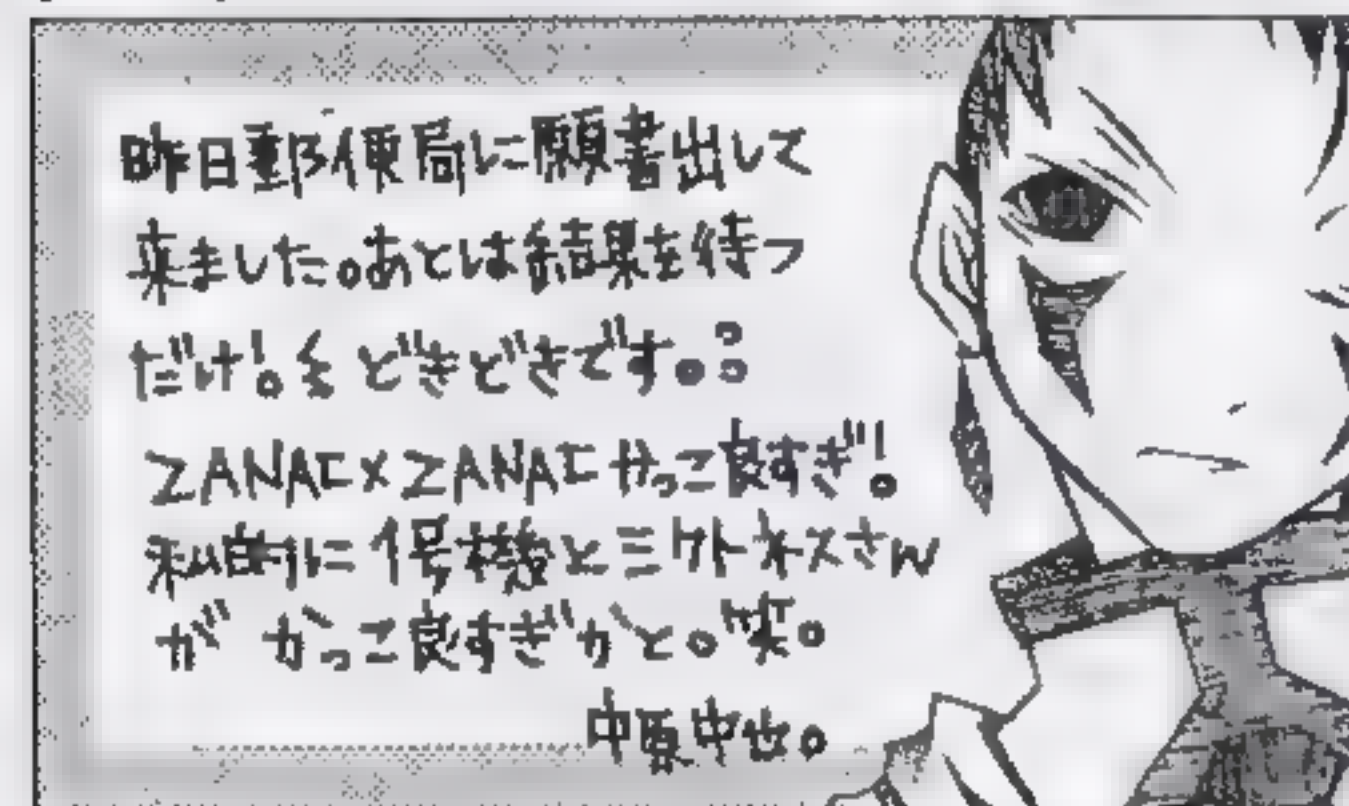 昨日郵便局に願書出して
来ました。あとは結果を待つ
だけ!。どきどきです。
ZANAC×ZANACかっこ良すぎ!。
私的に1号機とミクトネスさん
が かっこ良すぎかと。笑。
中原中也。